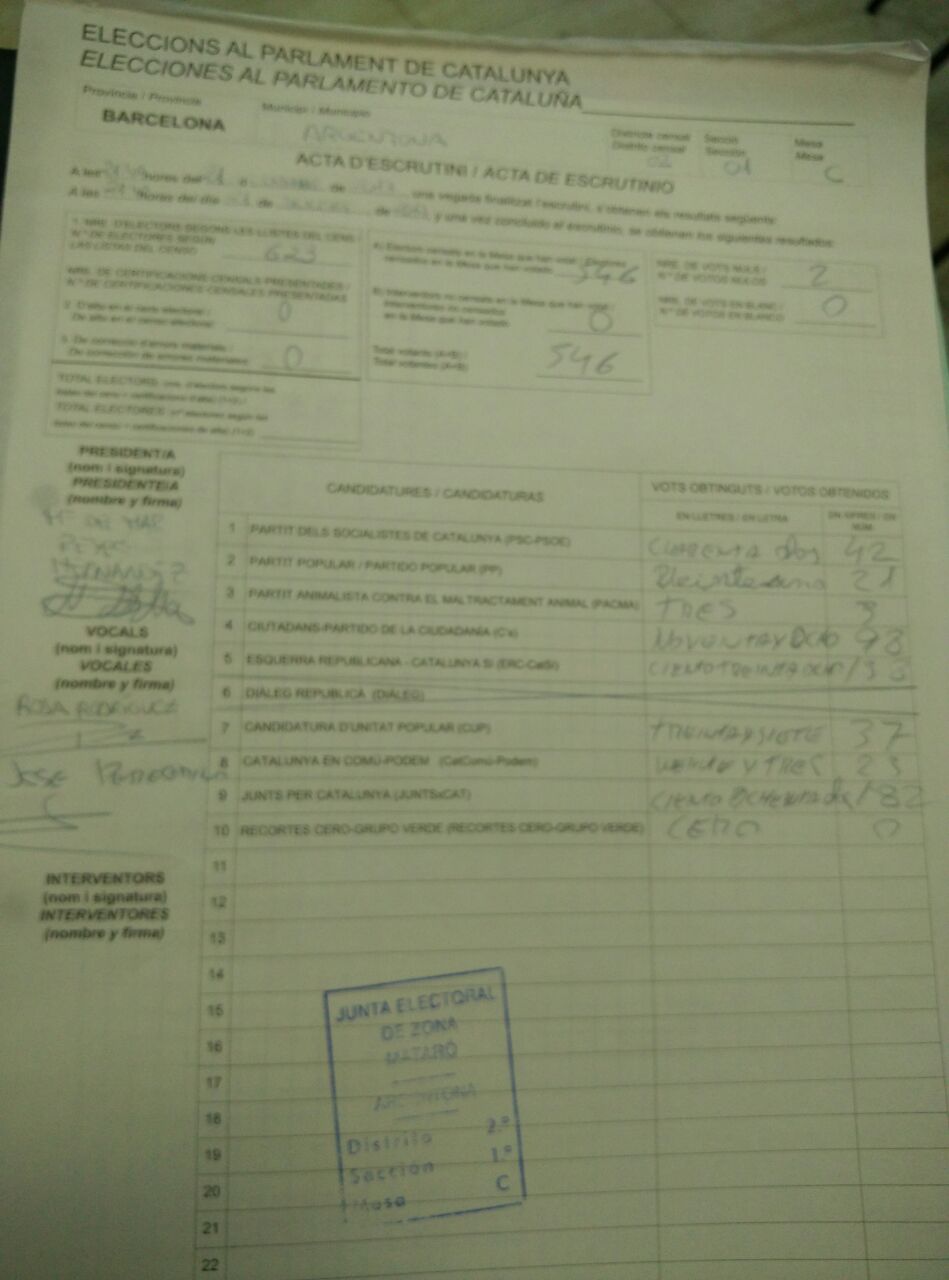 ELECCIONS AL PARLAMENT DE CATALUNYA
ELECCIONES AL PARLAMENTO DE CATALUÑA
Província / Provincia
BARCELONA
Municipi / Municipio
ARGENTONA
Districte censal
Distrito censal
02
Secció
Sección
01
Mesa
Mesa
C
ACTA D'ESCRUTINI / ACTA DE ESCRUTINIO
A les hores del de una vegada finalitzat l'escrutini, s'obtenen els resultats següents:
A las horas del día de de y una vez concluido el escrutinio, se obtienen los siguientes resultados:
1. NRE. D'ELECTORS SEGONS LES LLISTES DEL CENS /
N.º DE ELECTORES SEGÚN
LAS LISTAS DEL CENSO 623
NRE. DE CERTIFICACIONS CENSALS PRESENTADES /
N.º DE CERTIFICACIONES CENSALES PRESENTADAS
2. D'alta en el cens electoral /
De alta en el censo electoral: 0
3. De correcció d'errors materials /
De corrección de errores materiales: 0
TOTAL ELECTORS
TOTAL ELECTORES
A) Electors censats en la Mesa que han votat / Electores
censados en la Mesa que han votado 546
B) Interventors no censats en la Mesa que han votat /
Interventores no censados
en la Mesa que han votado 0
Total votants (A+B) /
Total votantes (A+B) 546
NRE. DE VOTS NULS /
N.º DE VOTOS NULOS 2
NRE. DE VOTS EN BLANC /
N.º DE VOTOS EN BLANCO 0
PRESIDENT/A
(nom i signatura)
PRESIDENTE/A
(nombre y firma)
Mª DEL MAR
VOCALS
(nom i signatura)
VOCALES
(nombre y firma)
ROSA RODRIGUEZ
JOSE
INTERVENTORS
(nom i signatura)
INTERVENTORES
(nombre y firma)
CANDIDATURES / CANDIDATURAS
VOTS OBTINGUTS / VOTOS OBTENIDOS
EN LLETRES / EN LETRA
EN XIFRES / EN NÚM.
1 PARTIT DELS SOCIALISTES DE CATALUNYA (PSC-PSOE) CUARENTA DOS 42
2 PARTIT POPULAR / PARTIDO POPULAR (PP) Veintiuno 21
3 PARTIT ANIMALISTA CONTRA EL MALTRACTAMENT ANIMAL (PACMA) TRES 3
4 CIUTADANS-PARTIDO DE LA CIUDADANÍA (C's) NOVENTA Y OCHO 98
5 ESQUERRA REPUBLICANA - CATALUNYA SÍ (ERC-CatSí) CIENTO TREINTA OCHO 138
6 DIÀLEG REPUBLICÀ (DIÀLEG)
7 CANDIDATURA D'UNITAT POPULAR (CUP) TREINTA Y SIETE 37
8 CATALUNYA EN COMÚ-PODEM (CatComú-Podem) VEINTE Y TRES 23
9 JUNTS PER CATALUNYA (JUNTSxCAT) CIENTO OCHENTA DOS 182
10 RECORTES CERO-GRUPO VERDE (RECORTES CERO-GRUPO VERDE) CERO 0
11
12
13
14
15
16
17
18
19
20
21
22
JUNTA ELECTORAL
DE ZONA
MATARÓ
ARGENTONA
Distrito 2.º
Sección 1.ª
Mesa C